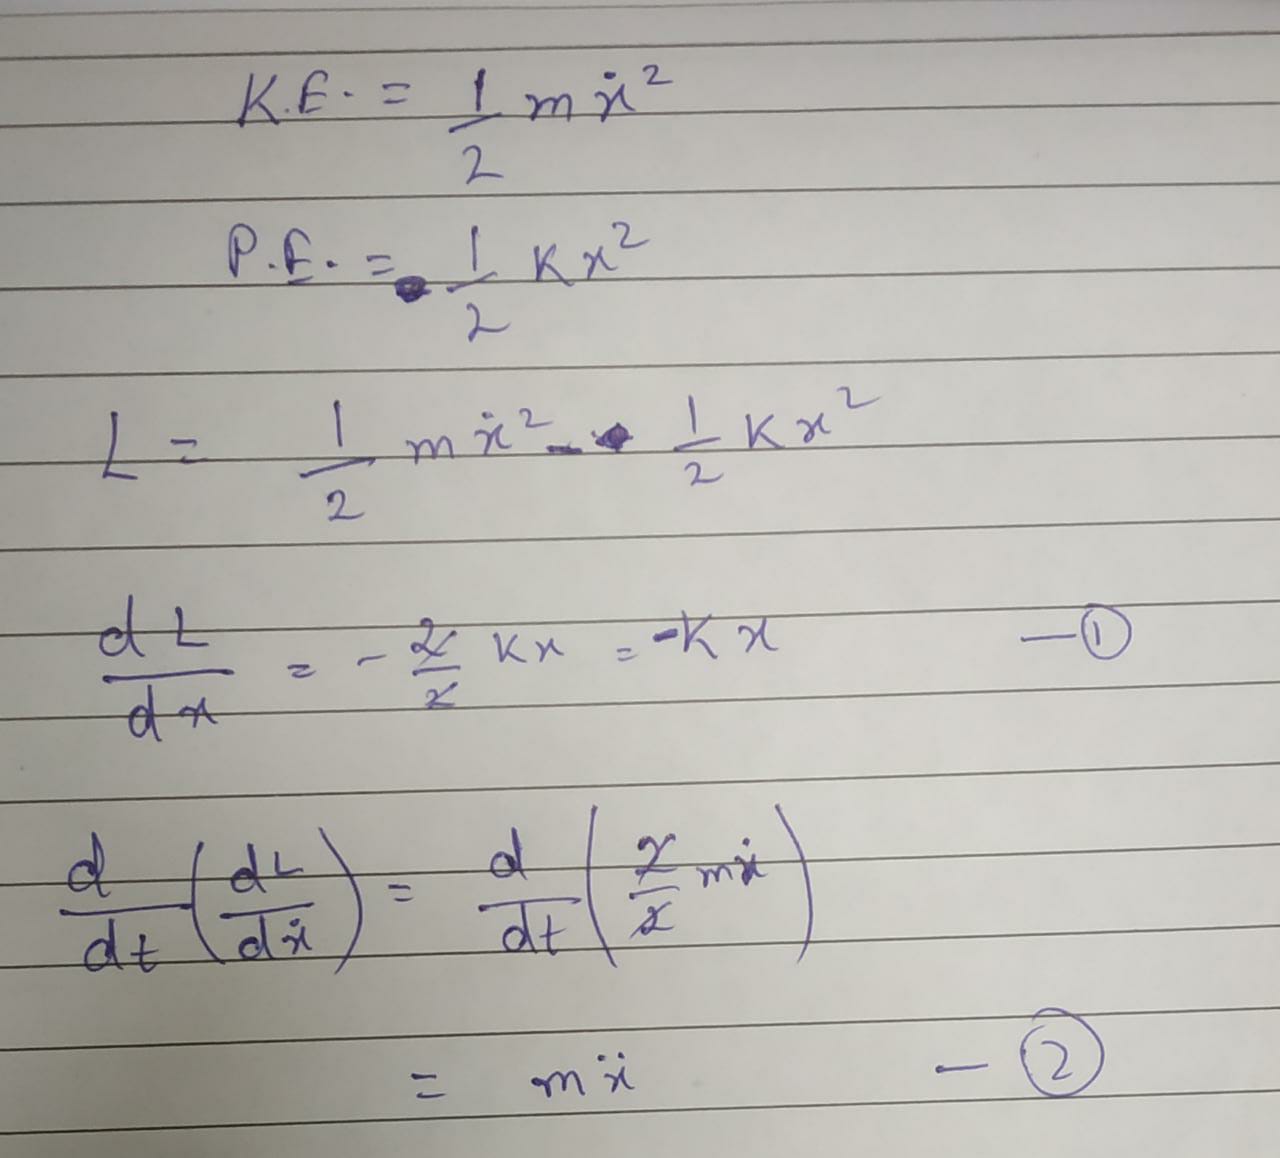 K.E. = 1/2 mẋ²
P.E. = 1/2 Kx²
L = 1/2 mẋ² - 1/2 Kx²
dL/dx = - 2/2 Kx = -Kx —①
d/dt (dL/dẋ) = d/dt (2/2 mẋ)
= mẍ —②